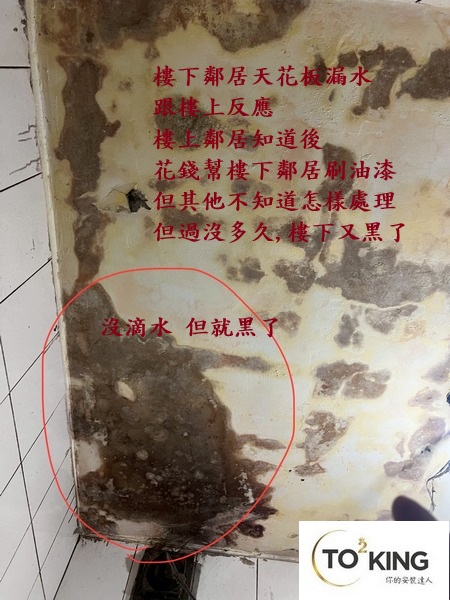 樓下鄰居天花板漏水
跟樓上反應
樓上鄰居知道後
花錢幫樓下鄰居刷油漆
但其他不知道怎樣處理
但過沒多久,樓下又黑了
沒滴水 但就黑了
TO2KING
你的安裝達人